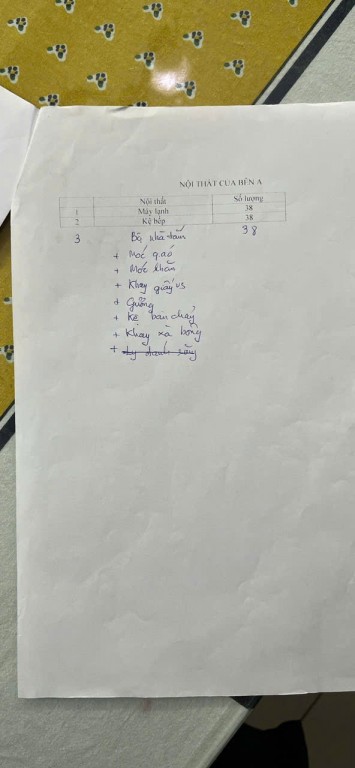 NỘI THẤT CỦA BÊN A
Nội thất Số lượng
1 Máy lạnh 38
2 Kệ bếp 38
3 Bộ nhà tắm 38
+ Móc q.áo
+ Móc khăn
+ Khay giấy vs
+ Gương
+ Kệ bàn chải
+ Khay xà bông
+